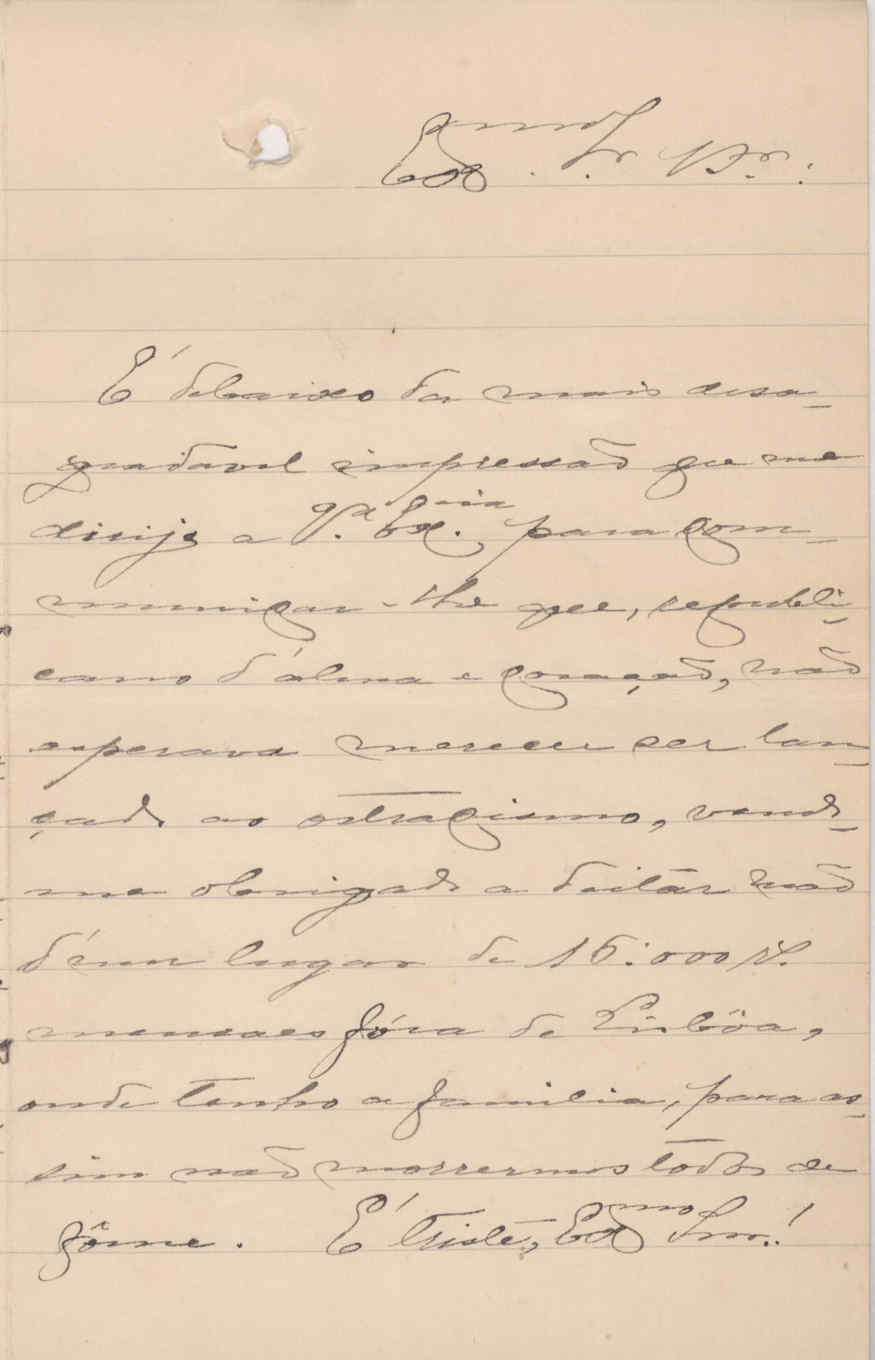 Ex.mo Sr. Dr.:
É debaixo da mais desa-
gradavel impressão que me
dirijo a V.ª Ex.cia, para com-
municar-lhe que, republi-
cano d'alma e coração, não
esperava merecer ser lan-
çado ao ostracismo, vendo-
me obrigado a deitar mão
d'um lugar de 15:000 rs.
mensaes fóra de Lisbôa,
onde tenho a familia, para as-
sim não morrermos todos de
fôme. É triste, Ex.mo Snr.!